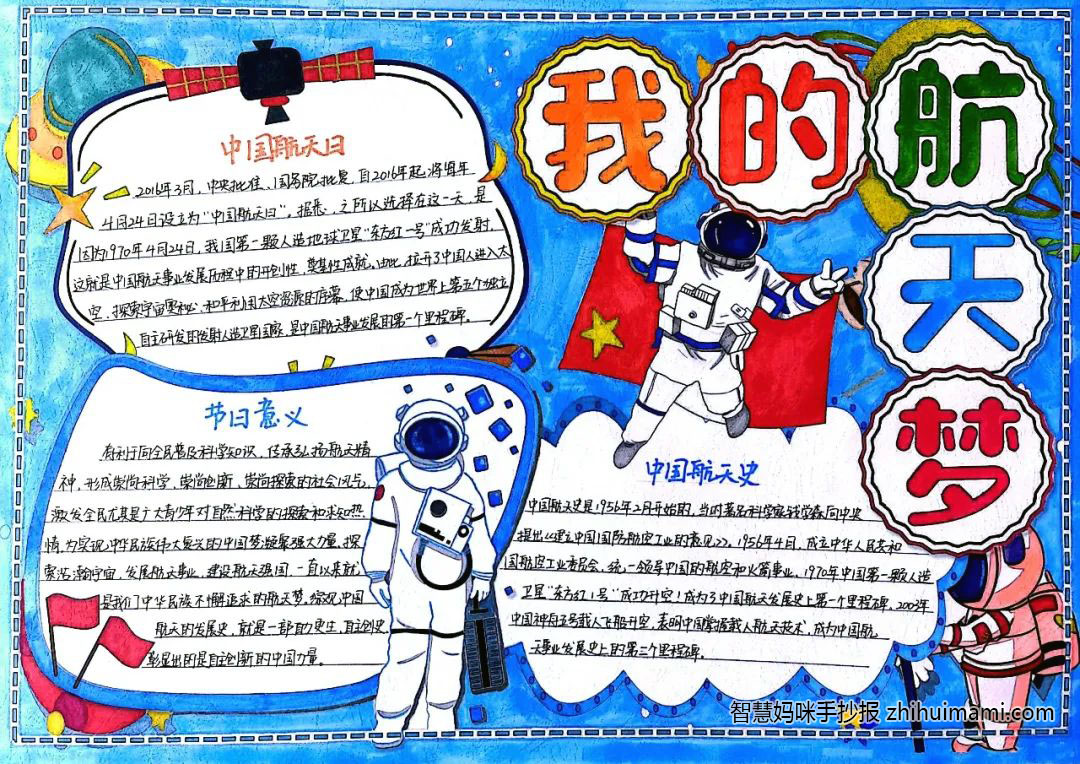 我的航天梦
中国航天日
2016年3月,中央批准、国务院批复,自2016年起,将每年
4月24日设立为"中国航天日"。据悉,之所以选择在这一天,是
因为1970年4月24日,我国第一颗人造地球卫星"东方红一号"成功发射,
这就是中国航天事业发展历程中的开创性、奠基性成就,由此,拉开了中国人进入太
空、探索宇宙奥秘、和平利用太空资源的序幕,使中国成为世界上第五个独立
自主研发的发射人造卫星国家,是中国航天事业发展的第一个里程碑。
节日意义
有利于向全民普及科学知识,传承弘扬航天精
神,形成崇尚科学、崇尚创新、崇尚探索的社会风气,
激发全民尤其是广大青少年对自然科学的探索和求知热
情,为实现中华民族伟大复兴的中国梦凝聚强大力量。探
索浩瀚宇宙,发展航天事业,建设航天强国,一直以来就
是我们中华民族不懈追求的航天梦。综观中国
航天的发展史,就是一部自力更生、自主创史
彰显出的是自主创新的中国力量。
中国航天史
中国航天史是1956年2月开始的,当时著名科学家钱学森向中央
提出《建立中国国防航空工业的意见》。1956年4月,成立中华人民共和
国航空工业委员会,统一领导中国的航空和火箭事业。1970年中国第一颗人造
卫星"东方红1号"成功升空!成为了中国航天发展史上第一个里程碑,2003年
中国神舟5号载人飞船升空,表明中国掌握载人航天技术,成为中国航
天事业发展史上的第二个里程碑。
智慧妈咪手抄报 zhihuimami.com